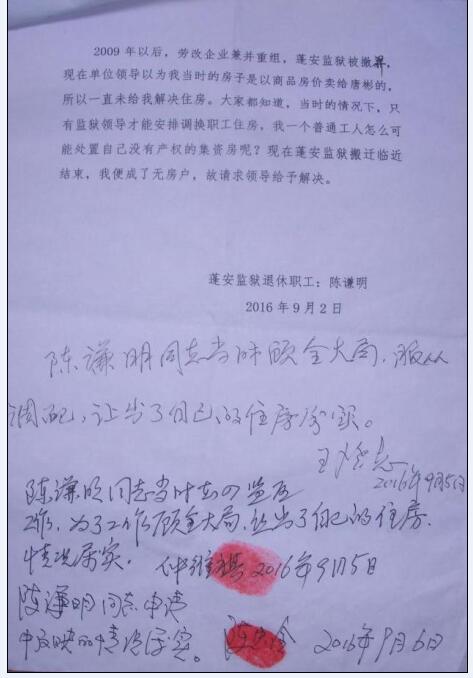 2009年以后，劳改企业兼并重组，蓬安监狱被撤
现在单位领导以为我当时的房子是以商品房价卖给唐彬的，
所以一直未给我解决住房。大家都知道，当时的情况下，只
有监狱领导才能安排调换职工住房，我一个普通工人怎么可
能处置自己没有产权的集资房呢？现在蓬安监狱搬迁临近
结束，我便成了无房户，故请求领导给予解决。
蓬安监狱退休职工：陈谦明
2016年9月2日
陈谦明同志当时顾全大局，服从
调配，让出了自己的住房
2016年9月5日
陈谦明同志当时在
工作，为了工作顾全大局，让出了自己的住房，
情况属实。 2016年9月5日
陈谦明同志申请
中反映的情况属实。 2016年9月6日